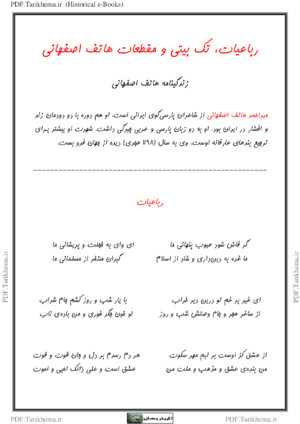 PDF.Tarikhema.ir (Historical e-Books)
رباعیات، تک بیتی و مقطعات هاتف اصفهانی
زندگینامه هاتف اصفهانی
میراحمد هاتف اصفهانی از شاعران پارسی‌گوی ایرانی است. او هم دوره با دو دودمان زند
و افشار در ایران بود. او به دو زبان پارسی و عربی چیرگی داشت. شهرت او بیشتر برای
ترجیع بندهای عارفانه اوست. وی به سال (۱۱۹۸ هجری) دیده از جهان فرو بست.
رباعیات
گر فاش شود عیوب پنهانی ما
ای وای به خجلت و پریشانی ما
ما غره به دین‌داری و شاد از اسلام
گبران متنفر از مسلمانی ما
ای غیر پر غم تو درین دیر خراب
با یار شب و روز کشم جام شراب
از ساغر هجر و جام وصلش شب و روز
تو خون جگر خوری و من باده‌ی ناب
از عشق کز اوست بر لبم مهر سکوت
هر دم رسدم بر دل و جان قوت و قوت
من بنده‌ی عشق و مذهب و ملت من
عشق است و علی ذالک احیی و اموت
PDF.Tarikhema.ir
PDF.Tarikhema.ir
PDF.Tarikhema.ir
PDF.Tarikhema.ir